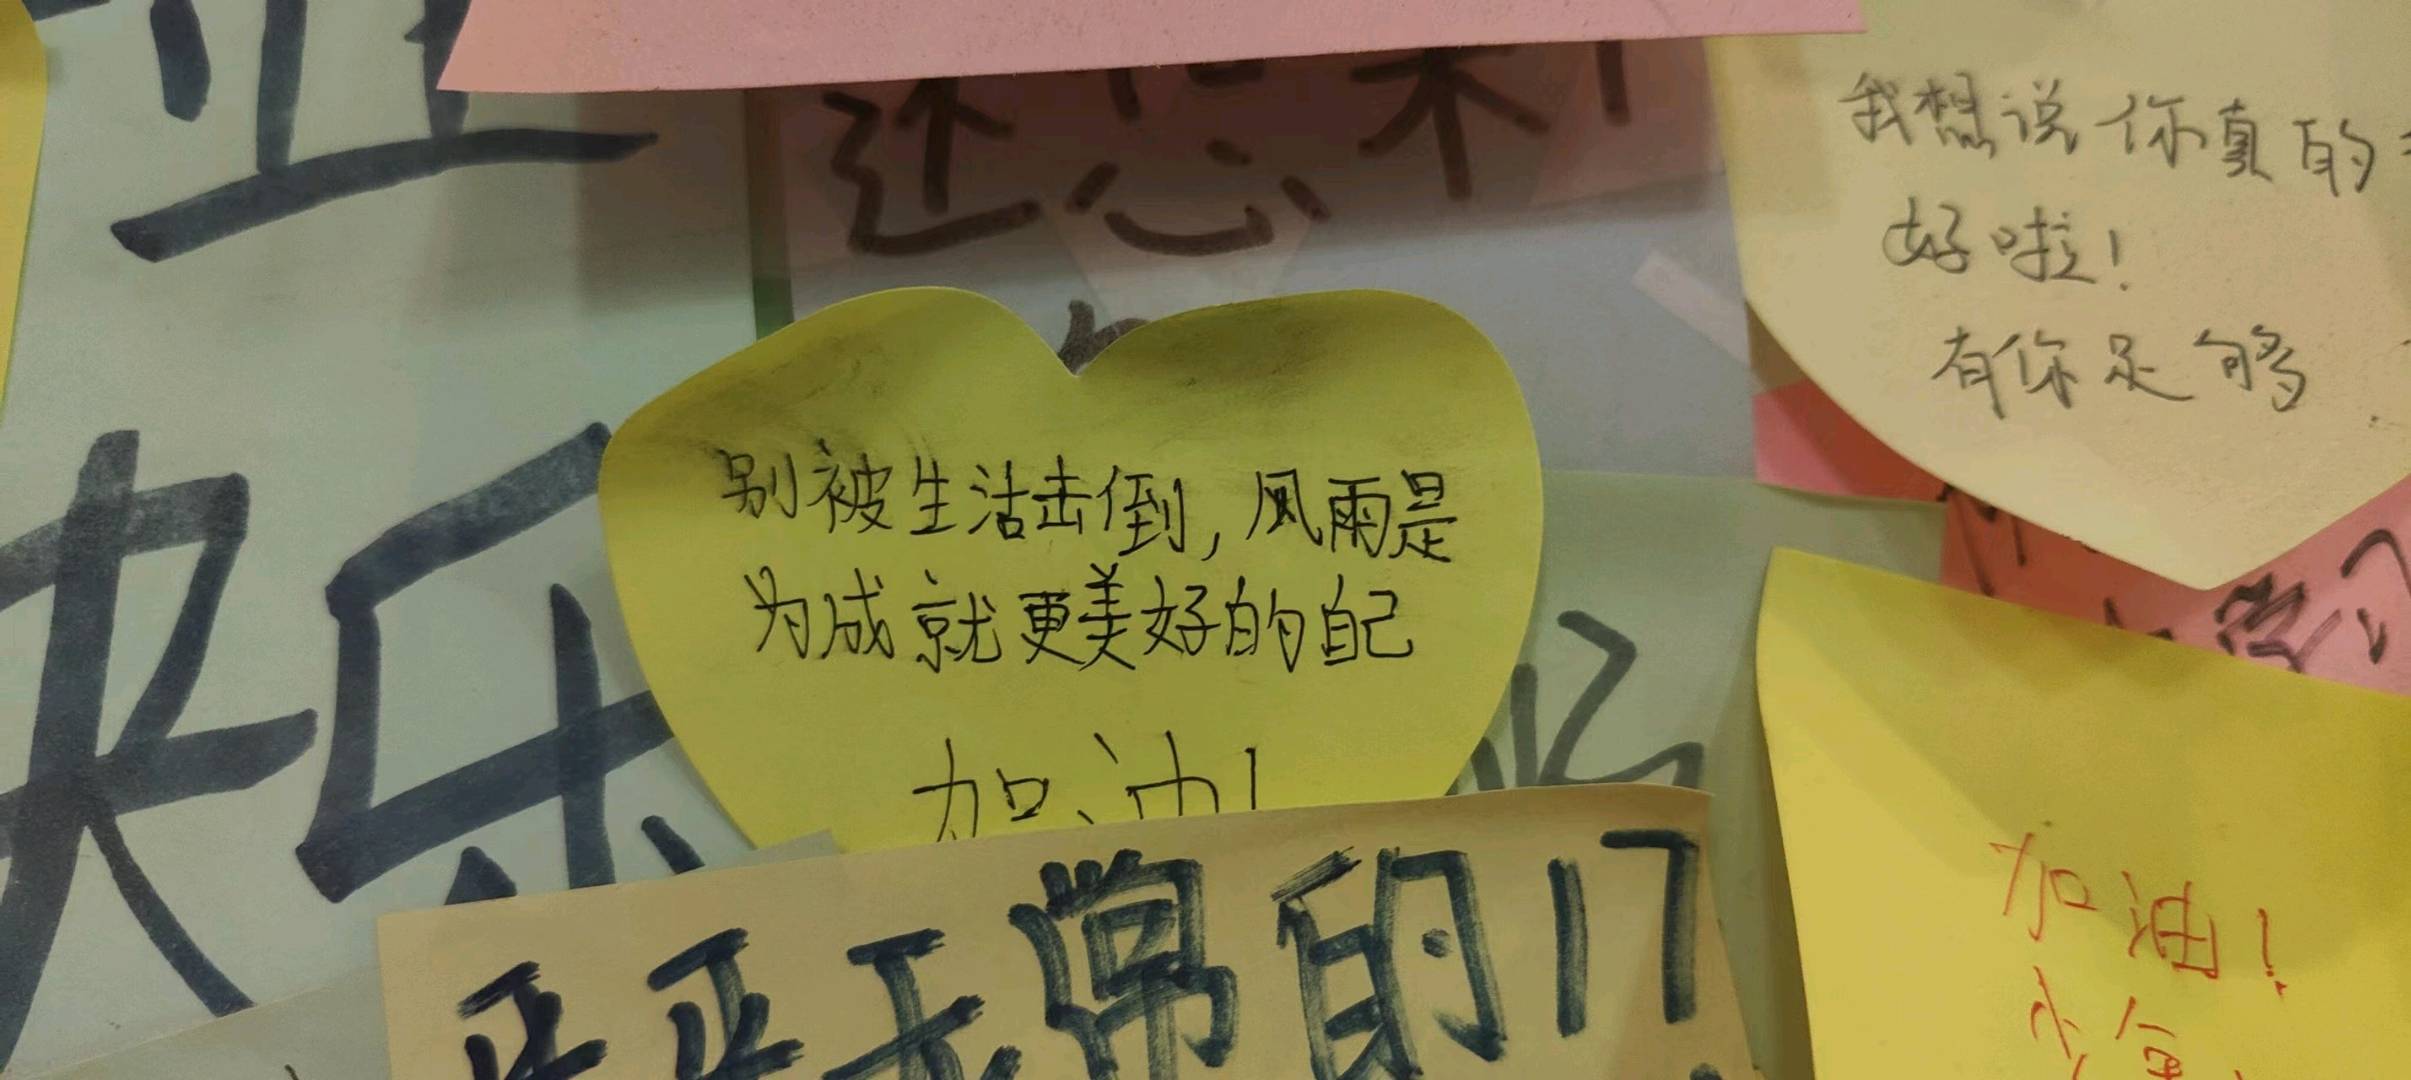 业
快乐
还
别被生活击倒,风雨是
为成就更美好的自己
加油!
我想说你真的
好啦!
有你足够
加油!
平平无常的17